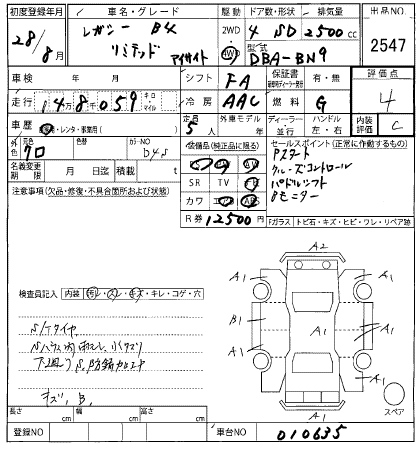 初度登録年月
車名・グレード
駆動
ドア数・形状
排気量
出品NO
28/8月
レガシー B4
リミテッド アイサイト
2WD
4WD
4 SD 2500cc
型式
DBA-BN9
2547
車検 年 月
シフト
FA
保証書
有・無
評価点
4
走行
148059
キロ
マイル
冷房
AAC
燃料
G
車歴
自家用・レンタ・事業用( )
定員
5人
外車モデル
年
ディーラー
並行
ハンドル
左・右
内装評価
C
外色
元色
クロ
色替
カラーNO
D4S
装備品(純正品に限る)
セールスポイント(正常に作動するもの)
Pスタート
クルーズコントロール
パドルシフト
Bモニター
名義変更期限
月 日
積載
t
SR TV
カワ
R券
12500円
注意事項(欠品・修復・不具合箇所および状態)
Fガラス
トビ石・キズ・ヒビ・ワレ・リペア跡
検査員記入
内装
汚レ・スレ・キズ・キレ・コゲ・穴
S/Tタイヤ
キズ、B、
A2
A1
A1
B1
A1
A1
A1
A1
A1
A1
スペア
長さ cm
幅 cm
高さ cm
登録NO
車台NO
010635